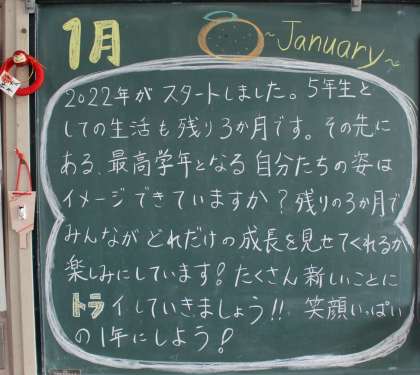 1月 ~January~
2022年がスタートしました。5年生と
しての生活も残り3か月です。その先に
ある、最高学年となる自分たちの姿は
イメージできていますか?残りの3か月で
みんながどれだけの成長を見せてくれるか
楽しみにしています!たくさん新しいことに
トライしていきましょう!!笑顔いっぱい
の1年にしよう!